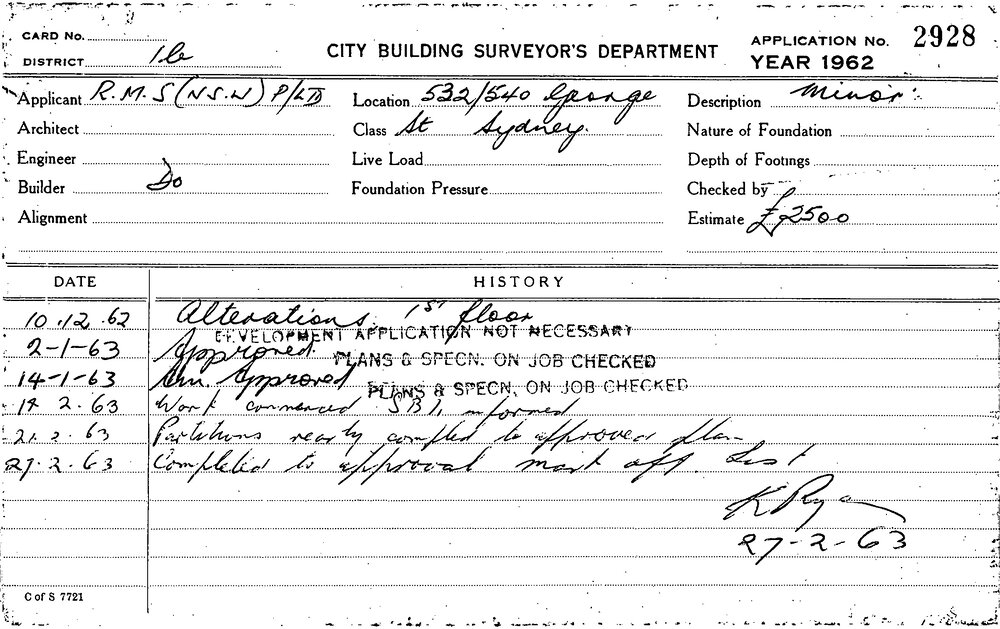 CARD No.
DISTRICT 1b
CITY BUILDING SURVEYOR'S DEPARTMENT
APPLICATION No. 2928
YEAR 1962
Applicant R.M.S (N.S.W) P/LTD
Location 532/540 George
Description Minor
Architect
Class St Sydney.
Nature of Foundation
Engineer
Live Load
Depth of Footings
Builder Do
Foundation Pressure
Checked by
Alignment
Estimate £2500
DATE
HISTORY
10.12.62 Alterations 1ST floor
DEVELOPMENT APPLICATION NOT NECESSARY
2-1-63 Approved.
PLANS & SPECN. ON JOB CHECKED
14-1-63 Am. Approved
PLANS & SPECN. ON JOB CHECKED
2.63 Work commenced informed
21.2.63 Partitions nearly to approved plan
27.2.63 Completed to approval mark off List
K Ryan
27-2-63
C of S 7721